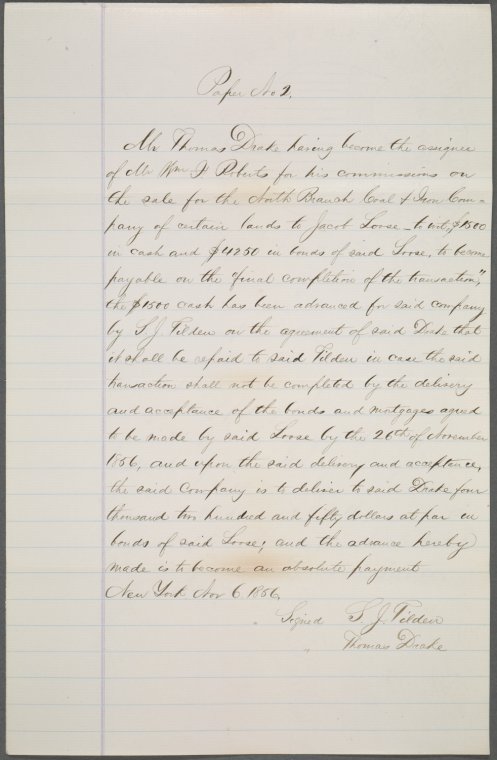 Paper No 2.
Mr Thomas Drake having become the assignee
of Mr Wm F Roberts for his commissions on
the sale for the North Branch Coal & Iron Com-
pany of certain lands to Jacob Loose - to wit, $1500
in cash and $4250 in bonds of said Loose, to become
payable on the "final completion of the transaction,"
the $1500 cash has been advanced for said company
by S. J. Tilden on the agreement of said Drake that
it shall be repaid to said Tilden in case the said
transaction shall not be completed by the delivery
and acceptance of the bonds and mortgages agreed
to be made by said Loose by the 26th of November
1856, and upon the said delivery and acceptance,
the said Company is to deliver to said Drake four
thousand two hundred and fifty dollars at par in
bonds of said Loose; and the advance hereby
made is to become an absolute payment
New York Nov 6. 1856.
Signed S. J. Tilden
" Thomas Drake